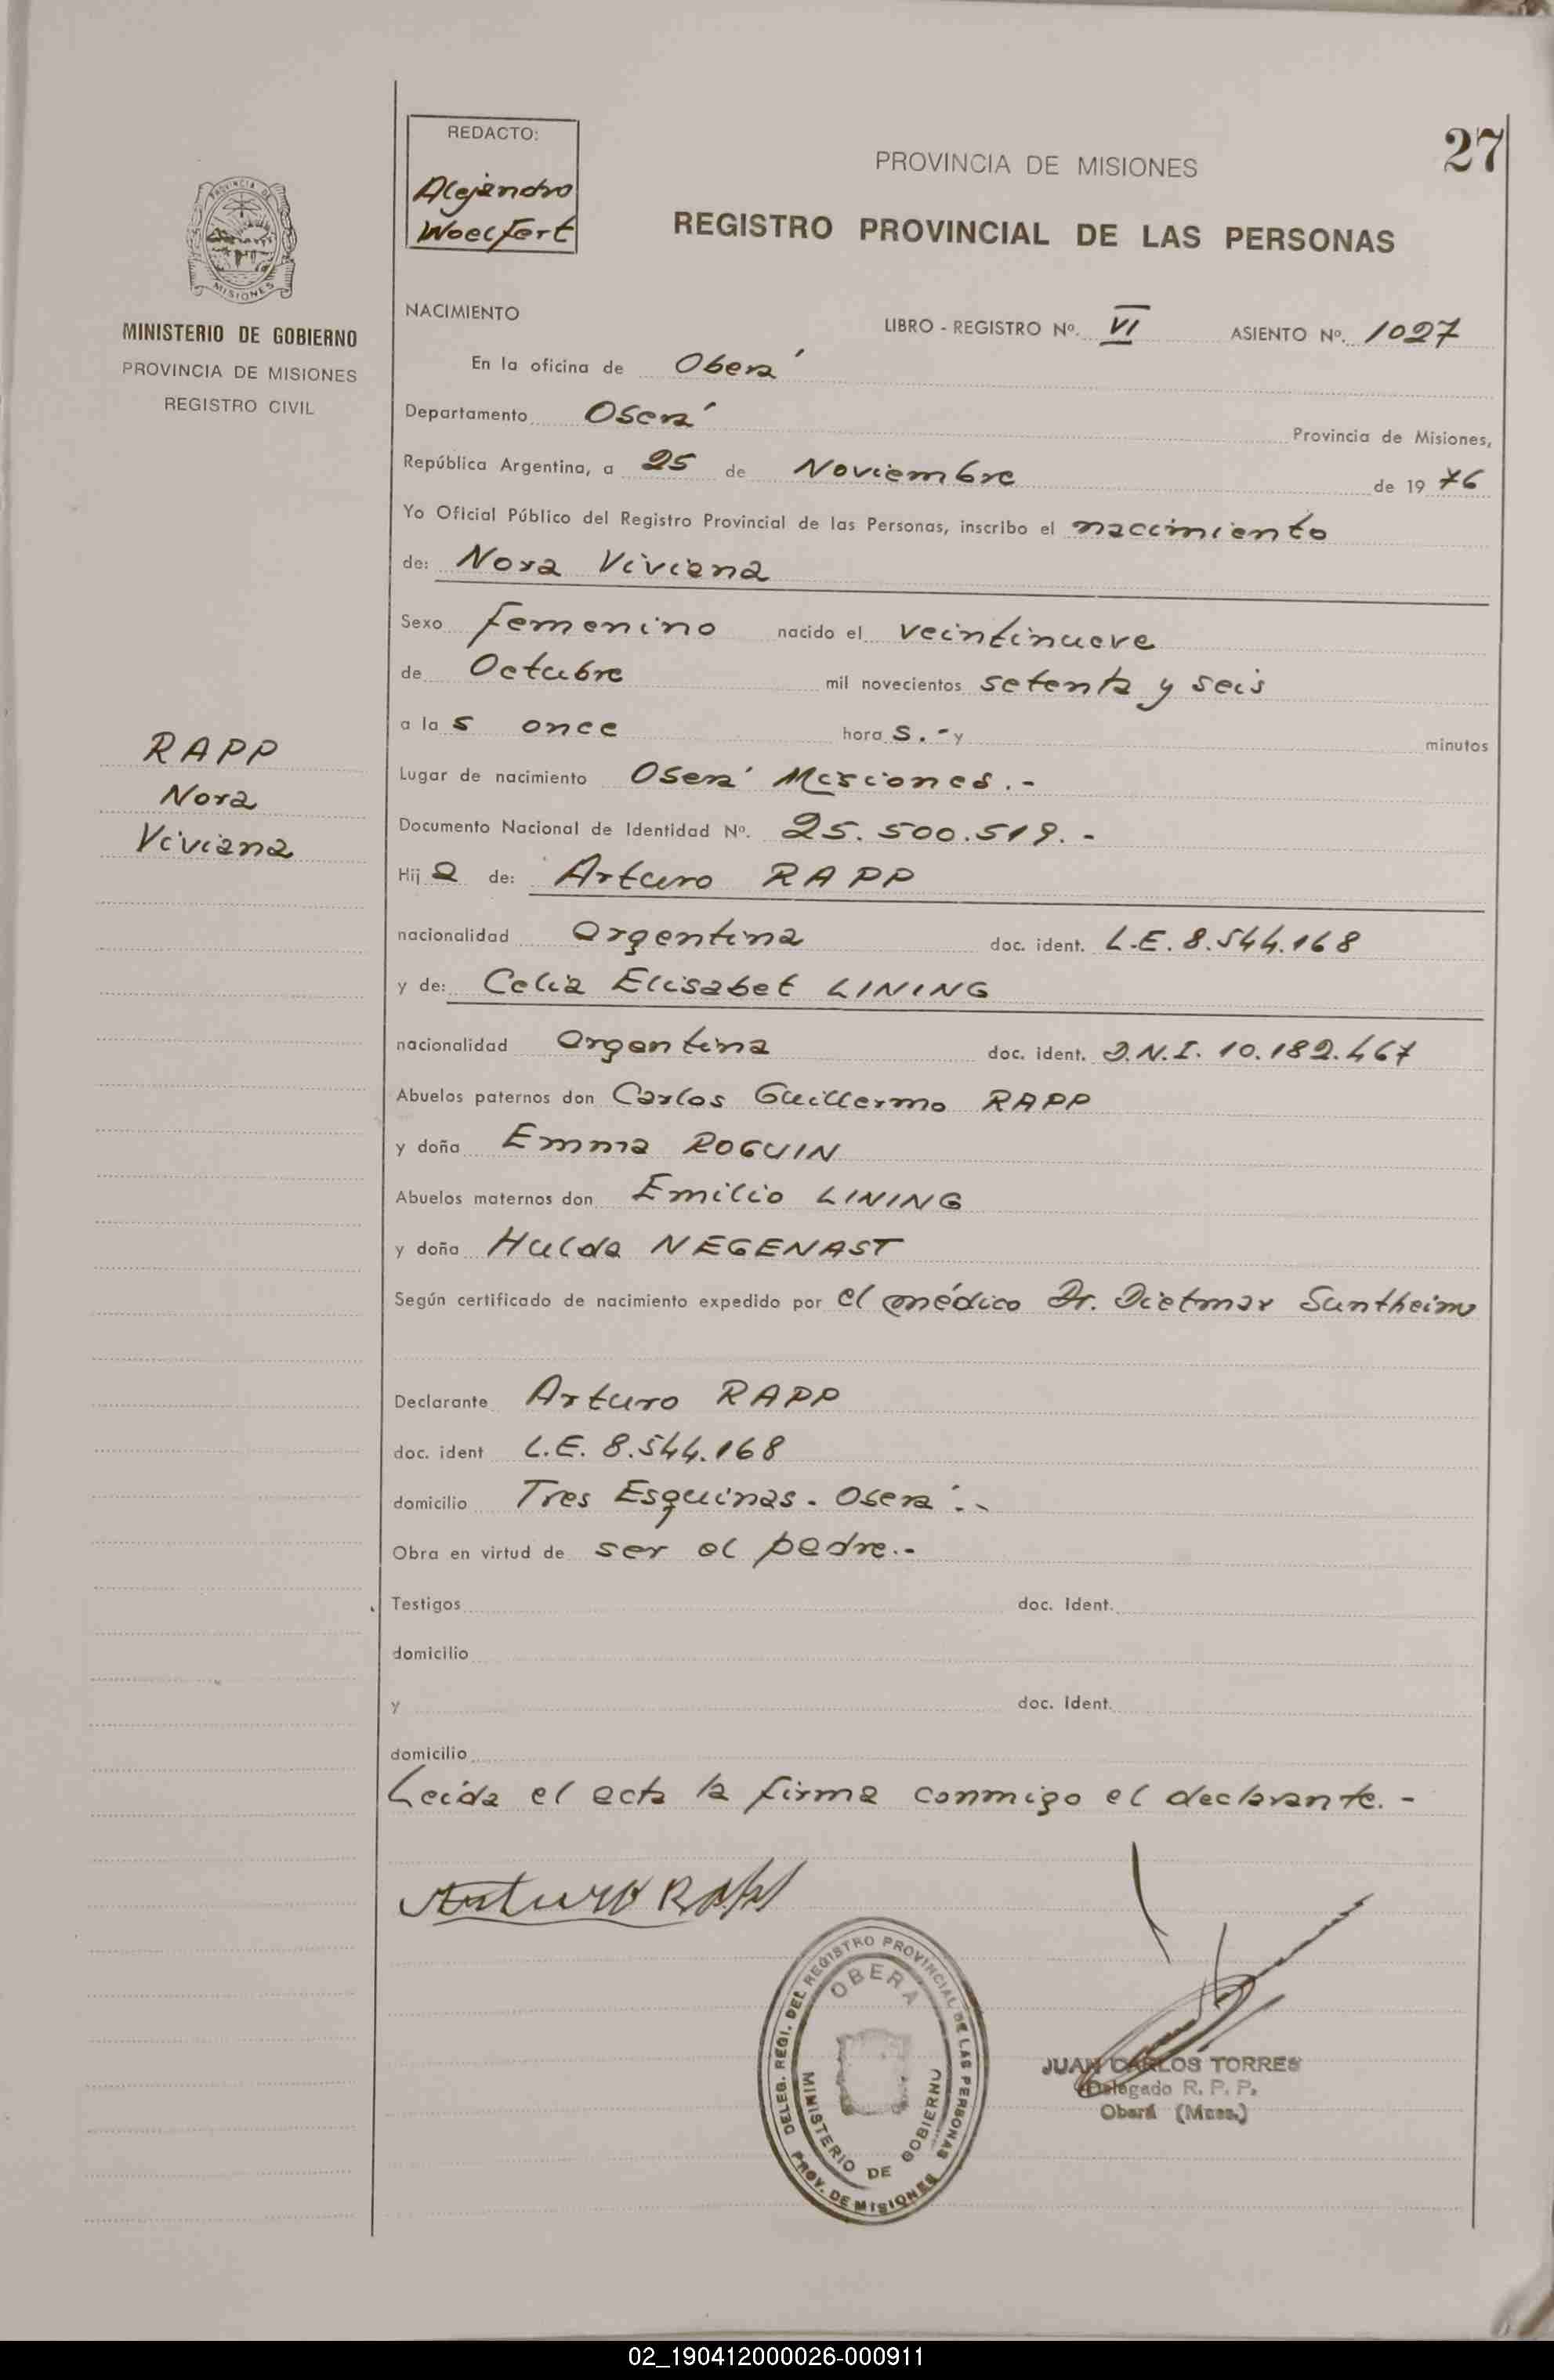 27
REDACTO:
Alejandro
Woelfert
PROVINCIA DE MISIONES
REGISTRO PROVINCIAL DE LAS PERSONAS
PROVINCIA DE
MISIONES
MINISTERIO DE GOBIERNO
PROVINCIA DE MISIONES
REGISTRO CIVIL
RAPP
Nora
Viviana
NACIMIENTO
LIBRO - REGISTRO Nº. VI ASIENTO Nº. 1027
En la oficina de Oberá
Departamento Oberá Provincia de Misiones,
República Argentina, a 25 de Noviembre de 19 76
Yo Oficial Público del Registro Provincial de las Personas, inscribo el nacimiento
de: Nora Viviana
Sexo femenino nacido el veintinueve
de Octubre mil novecientos setenta y seis
a la s once hora s.- y minutos
Lugar de nacimiento Oberá Misiones.-
Documento Nacional de Identidad Nº. 25.500.519.-
Hij a de: Arturo RAPP
nacionalidad Argentina doc. ident. L.E. 8.544.168
y de: Celia Elisabet LINING
nacionalidad Argentina doc. ident. D.N.I. 10.182.467
Abuelos paternos don Carlos Guillermo RAPP
y doña Emma ROGUIN
Abuelos maternos don Emilio LINING
y doña Hulda NEGENAST
Según certificado de nacimiento expedido por el médico Dr. Dietmar Suntheim
Declarante Arturo RAPP
doc. ident L.E. 8.544.168
domicilio Tres Esquinas - Oberá.-
Obra en virtud de ser el padre.-
Testigos doc. Ident.
domicilio
y doc. Ident.
domicilio
Leída el acta la firma conmigo el declarante.-
Arturo Rapp
DELEG. REGI. DEL REGISTRO PROVINCIAL DE LAS PERSONAS
OBERA
MINISTERIO DE GOBIERNO
PROV. DE MISIONES
JUAN CARLOS TORRES
Delegado R. P. P.
Oberá (Mnes.)
02_190412000026-000911